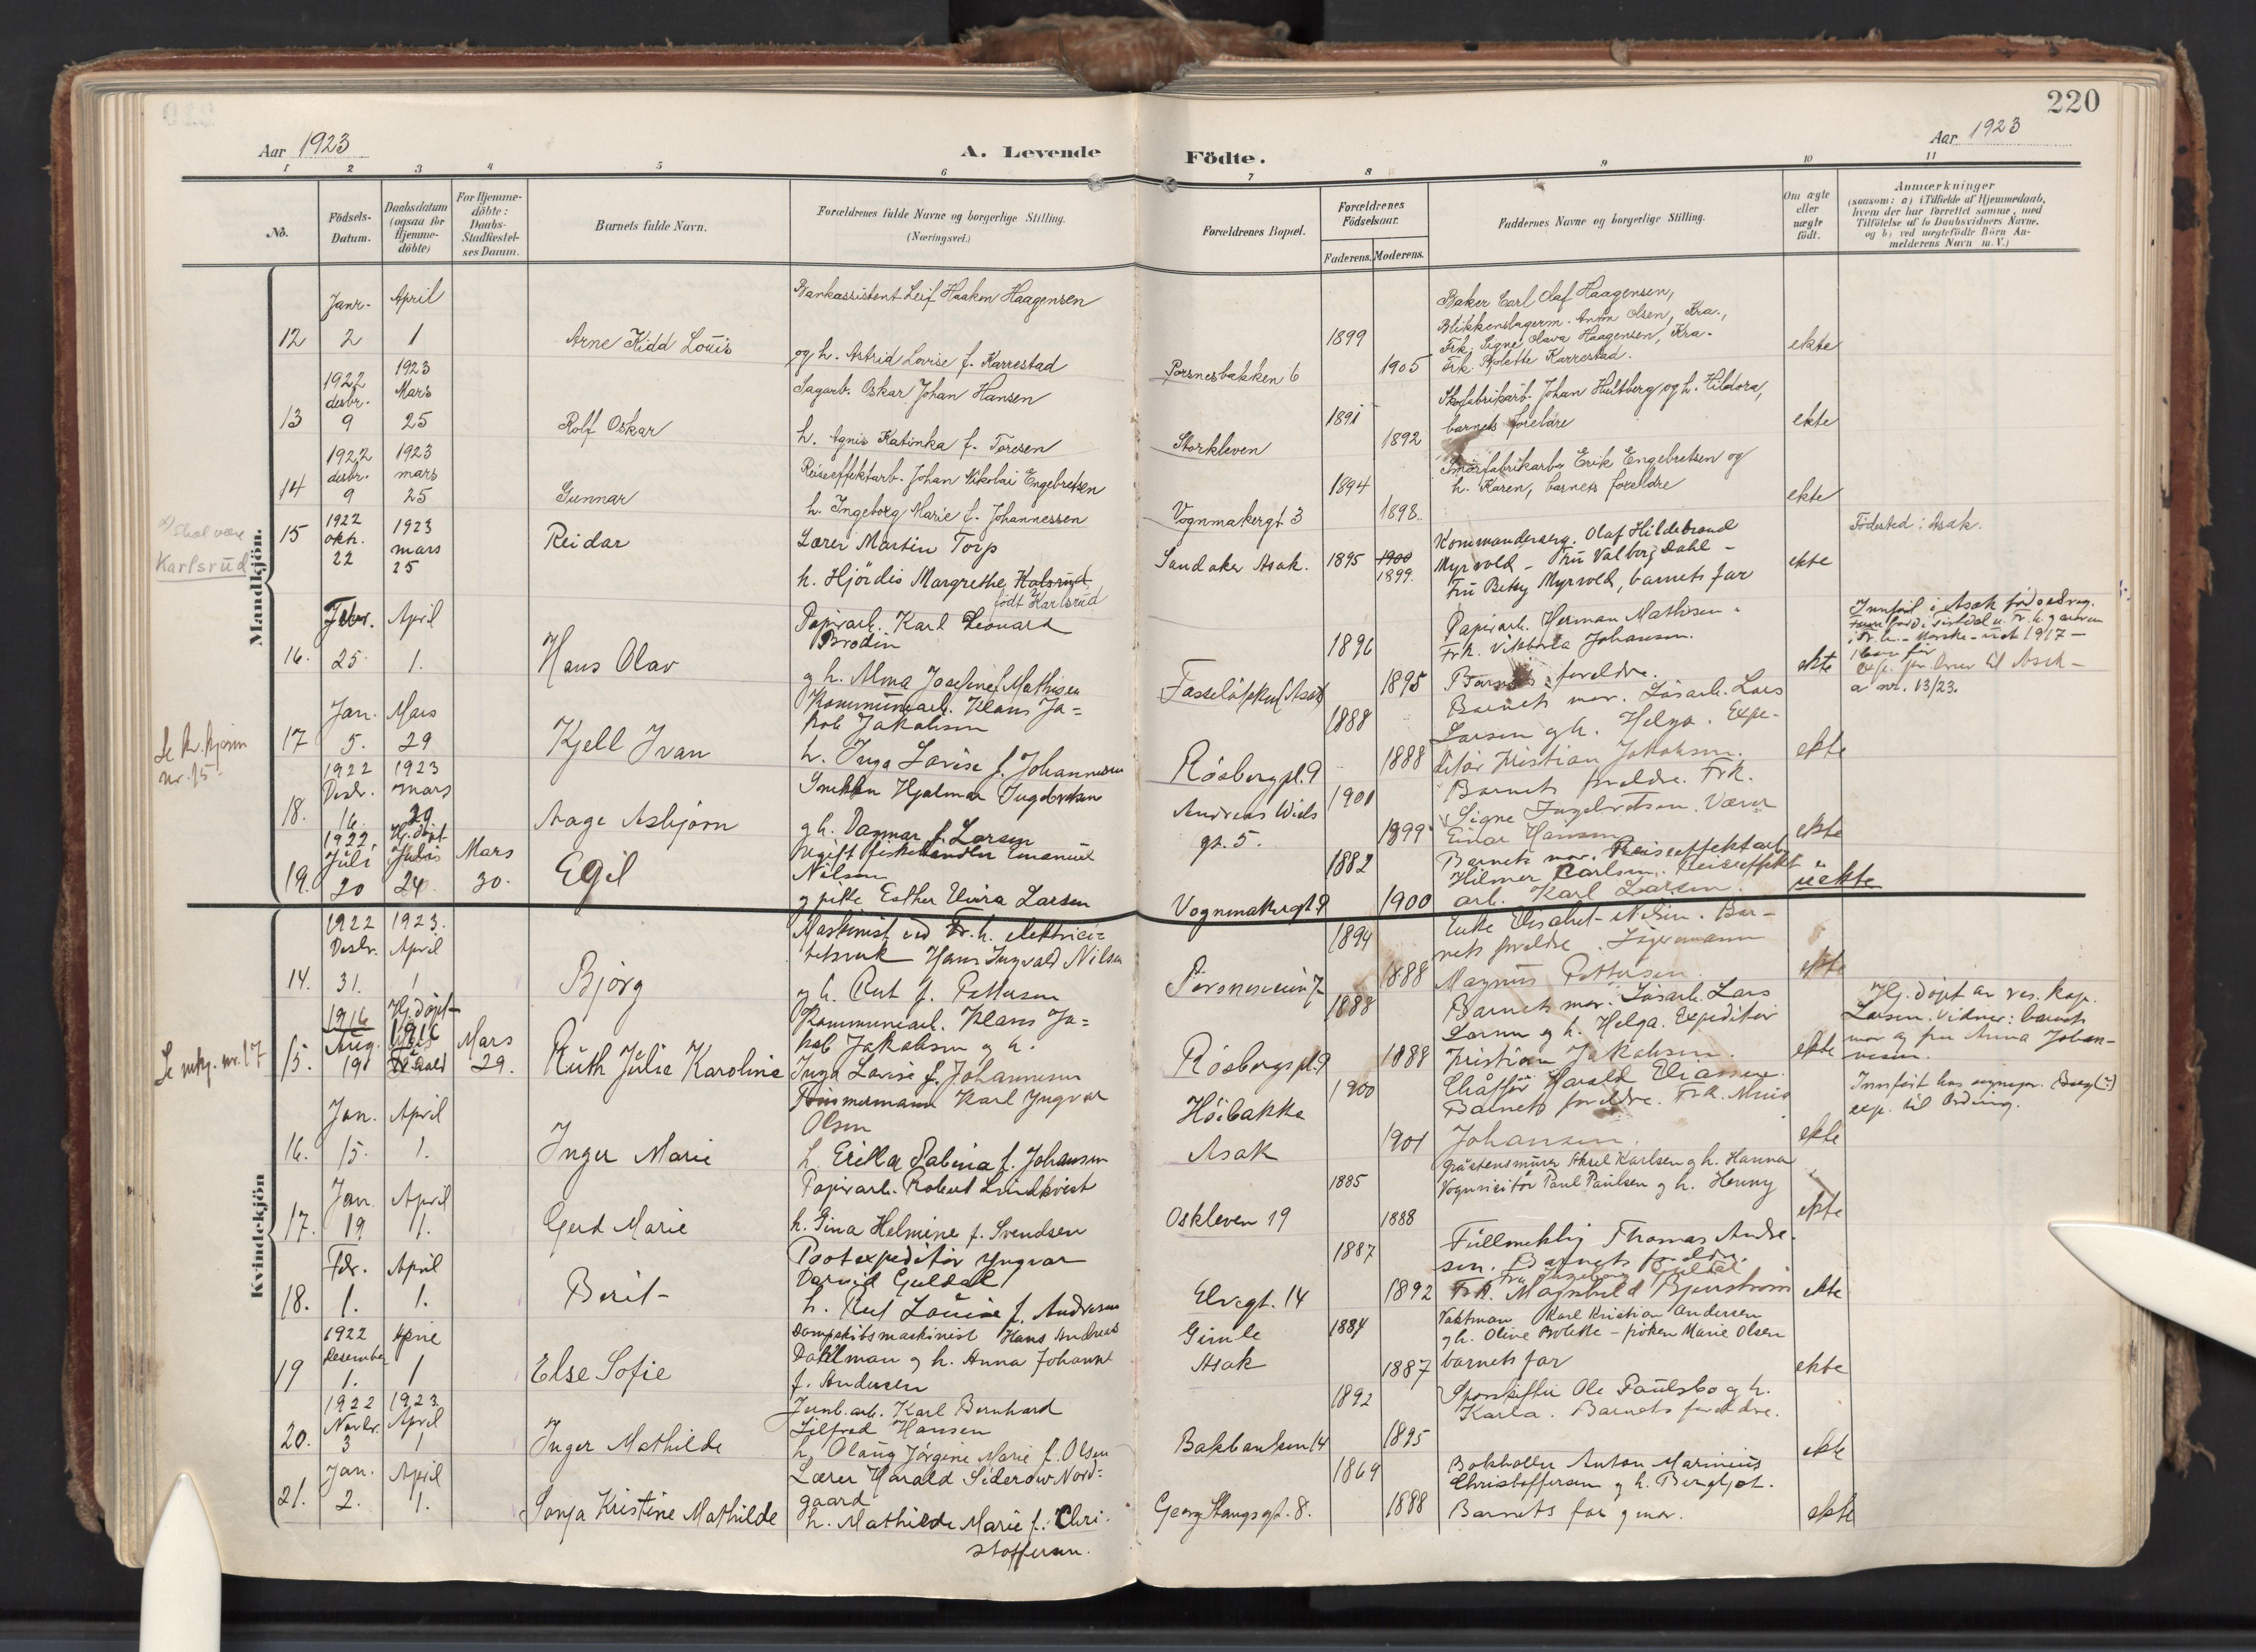 220
Aar 1923
A. Levende
Födte.
Aar 1923
1 2 3 4 5 6 7 8 9 10 11
No.
Födsels-
Datum.
Daabsdatum
(ogsaa for
Hjemme-
döbte)
For Hjemme-
döbte:
Daabs-
Stadfæstel-
ses Datum.
Barnets fulde Navn.
Forældrenes fulde Navne og borgerlige Stilling.
(Næringsvei.)
Forældrenes Bopæl.
Forældrenes
Födselsaar.
Faderens. Moderens.
Faddernes Navne og borgerlige Stilling.
Om ægte
eller
uægte
födt.
Anmærkninger
(saasom: a) i Tilfælde af Hjemmedaab,
hvem der har forrettet samme, med
Tilföielse af to Daabsvidners Navne,
og b) ved uægtefödte Börn An-
melderens Navn m. V.)
Mandkjön.
12 Janr. 2 April 1
Arne Kidd Louis
Bankassistent Leif Haakon Haagensen
og h. Astrid Lovise f. Karrestad
Porsnesbakken 6
1899 1905
Baker Carl Olaf Haagensen,
Blikkenslagerm. Anton Olsen, Kra.,
Frk. Signe Olava Haagensen, Kra.
Frk. Bolette Karrestad.
ekte
13 1922 desbr. 9 1923 Mars 25
Rolf Oskar
Sagarb. Oskar Johan Hansen
h. Agnis Katinka f. Toresen
Storkleven
1891 1892
Skofabrikarb. Johan Hultberg og h. Hildora,
barnets foreldre
ekte
14 1922 desbr. 9 1923 mars 25
Gunnar
Reiseeffektarb. Johan Nikolai Engebretsen
h. Ingeborg Marie f. Johannessen
Vognmakergt 3
1894 1898
Smörfabrikarb. Erik Engebretsen og
h. Karen, barnets foreldre
ekte
skal være
Karlsrud
15 1922 okt. 22 1923 mars 25
Reidar
Lærer Martin Torp
h. Hjördis Margrethe Kalsrud
födt Karlsrud
Sandaker Asak.
1895 1900
1899.
Kommanderserg. Olaf Hildebrand
Myrvold - Fru Valborg Dahl -
Fru Betsy Myrvold, barnets far
ekte
Födested: Asak.
16. Febr. 25 April 1.
Hans Olav
Papirarb. Karl Leonard
Brodin
og h. Alma Josefine f. Mathisen
1896 1895
Papirarb. Herman Mathisen.
Frk. Viktoria Johansen.
Barnets foreldre.
ekte
a nr. 13/23.
Se kv.kjønn
nr. 15.
17 Jan. 5. Mars 29
Kjell Ivan
Kommunearb. Klaus Ja=
kob Jakobsen
h. Inga Lovise f. Johannesen
Rösbergpl. 9
1888 1888
Barnets mor. Lösarb. Lars
Larsen og h. Helga. Expe-
ditör Kristian Jakobsen.
ekte
18. 1922 Desbr. 16. 1923 mars 29
Aage Asbjørn
Snekker Hjalmar Ingebretsen
g h. Dagmar f. Larsen
Andreas Wiels
gt. 5.
1901 1899
Barnets foreldre. Frk.
Signe Ingebretsen. Værer
Einar Hansen
ekte
19. 1922 Juli 20 Hj. døpt Juli 24 Mars 30.
Egil
Ugift fiskehandler Emanuel
Nilsen
g pike Esther Elvira Larsen
Vognmakergt 9
1882 1900
Barnets mor. Reiseeffektarb.
Hilmer Carlsen. Reiseeffekt
arb. Karl Larsen.
uekte
Kvindekjön
14. 1922 Desbr. 31. 1923. April 1
Bjørg
Maskinist ved Fr.h. elektrici=
tetsverk Hans Ingvald Nilsen
og h. Rut f. Pettersen
Porsnesveien 7
1894 1888
Enke Elisabet Nilsen. Bar-
nets foreldre. Lagermann
Magnus Pettersen
ekte
Se mkj. nr. 17
15. 1916 Aug. 19 Hj. døpt 1916 Mars 29.
Ruth Julie Karoline
Kommunearb. Klaus Ja=
kob Jakobsen g h.
Inga Lovise f. Johannesen
Rösbergpl. 9
1888 1888
Barnets mor. Lösarb. Lars
Larsen g h. Helga. Expeditör
Kristian Jakobsen.
ekte
Hj. døpt av res. kap.
Larsen. Vidner: barnets
mor og fru Anna Johan-
nesen.
16. Jan. 15. April 1.
Inger Marie
Tømmermann Karl Yngvar
Olsen
h. Erikka Sabina f. Johansen
Höibakke
Asak
1900 1901
Chåffør Harald Eliassen.
Barnets foreldre. Frk.
Johansen.
ekte
exp. til Ordning.
17. Jan. 19 April 1.
Gerd Marie
Papirarb. Robert Lindkvist
h. Gina Helmine f. Svendsen
Oskleven 19
1885 1888
Gråstensmurer Aksel Karlsen g h. Hanna
Vognvisitör Paul Paulsen g h. Henny
ekte
18. Febr. 1. April 1.
Berit
Postexpeditör Yngvar
Darvid Guldal
h. Rut Louise f. Andresen
Elvegt. 14
1887 1892
Fullmektig Thomas Andre-
sen. Barnets foreldre.
Fru Ingeborg Guldal
Frk. Magnhild Bjerström
ekte
19 1922 Desember 1. April 1
Else Sofie
Dampskibsmaskinist Hans Andreas
Dahlman g h. Anna Johanne
f. Andersen
Gimle
Asak
1884 1887
Vaktman Karl Kristian Andersen
g h. Oline Bolette - frøken Marie Olsen
barnets far
ekte
20. 1922 Novbr. 3 1923. April 1
Inger Mathilde
Jernb.arb. Karl Bernhard
Hansen
h. Olaug Jörgine Marie f. Olsen
Bakbanken 14
1892 1895
Sporskifter Ole Paulsbo g h.
Karla. Barnets foreldre.
ekte
21. Jan. 2. April 1.
Sonja Kristine Mathilde
Lærer Harald Siderow Nord=
gaard
h. Mathilde Marie f. Chri-
stoffersen.
Georg Stangs gt. 8.
1869 1888
Bokholder Anton Marinius
Christoffersen g h. Bergljot.
Barnets far g mor.
ekte